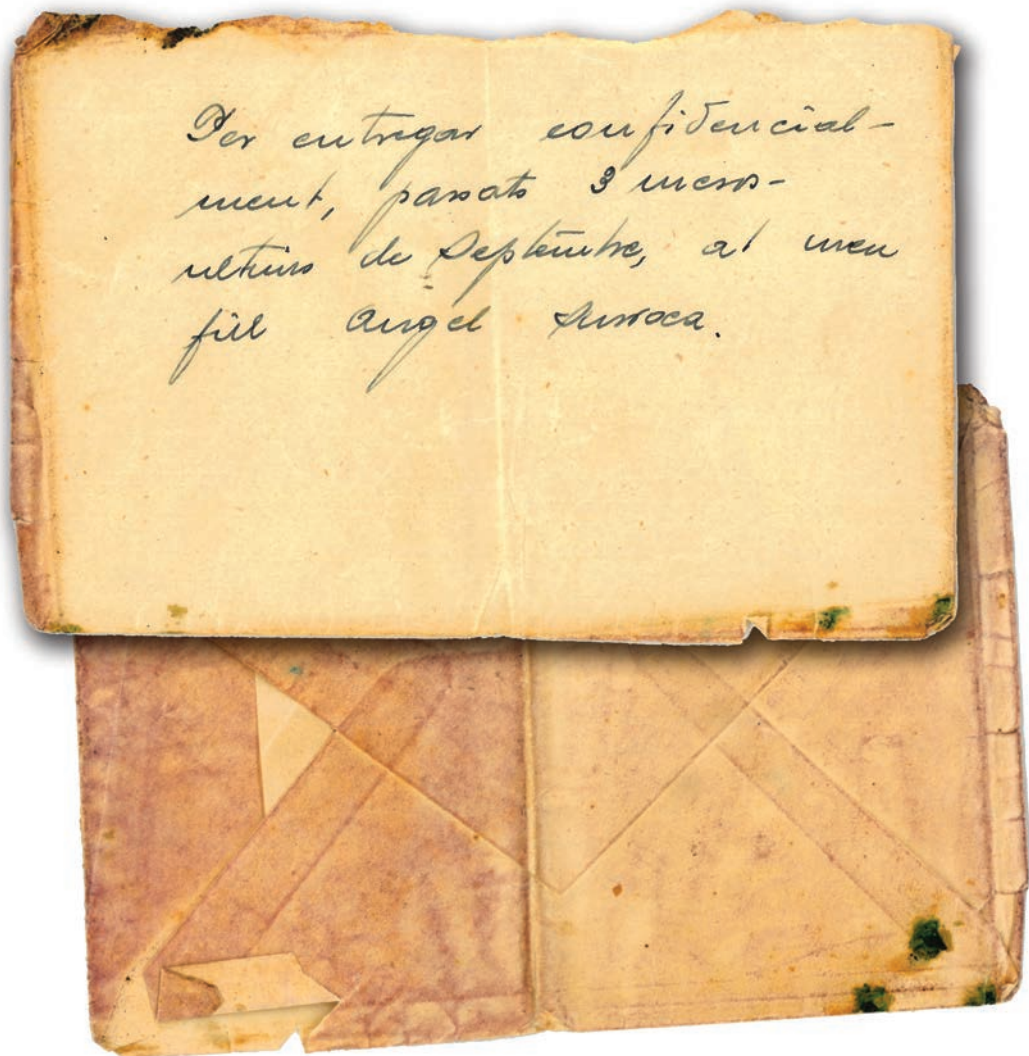 Per entregar confidencial-
ment, passats 3 mesos-
ultims de Septembre, al meu
fill Angel Surroca.